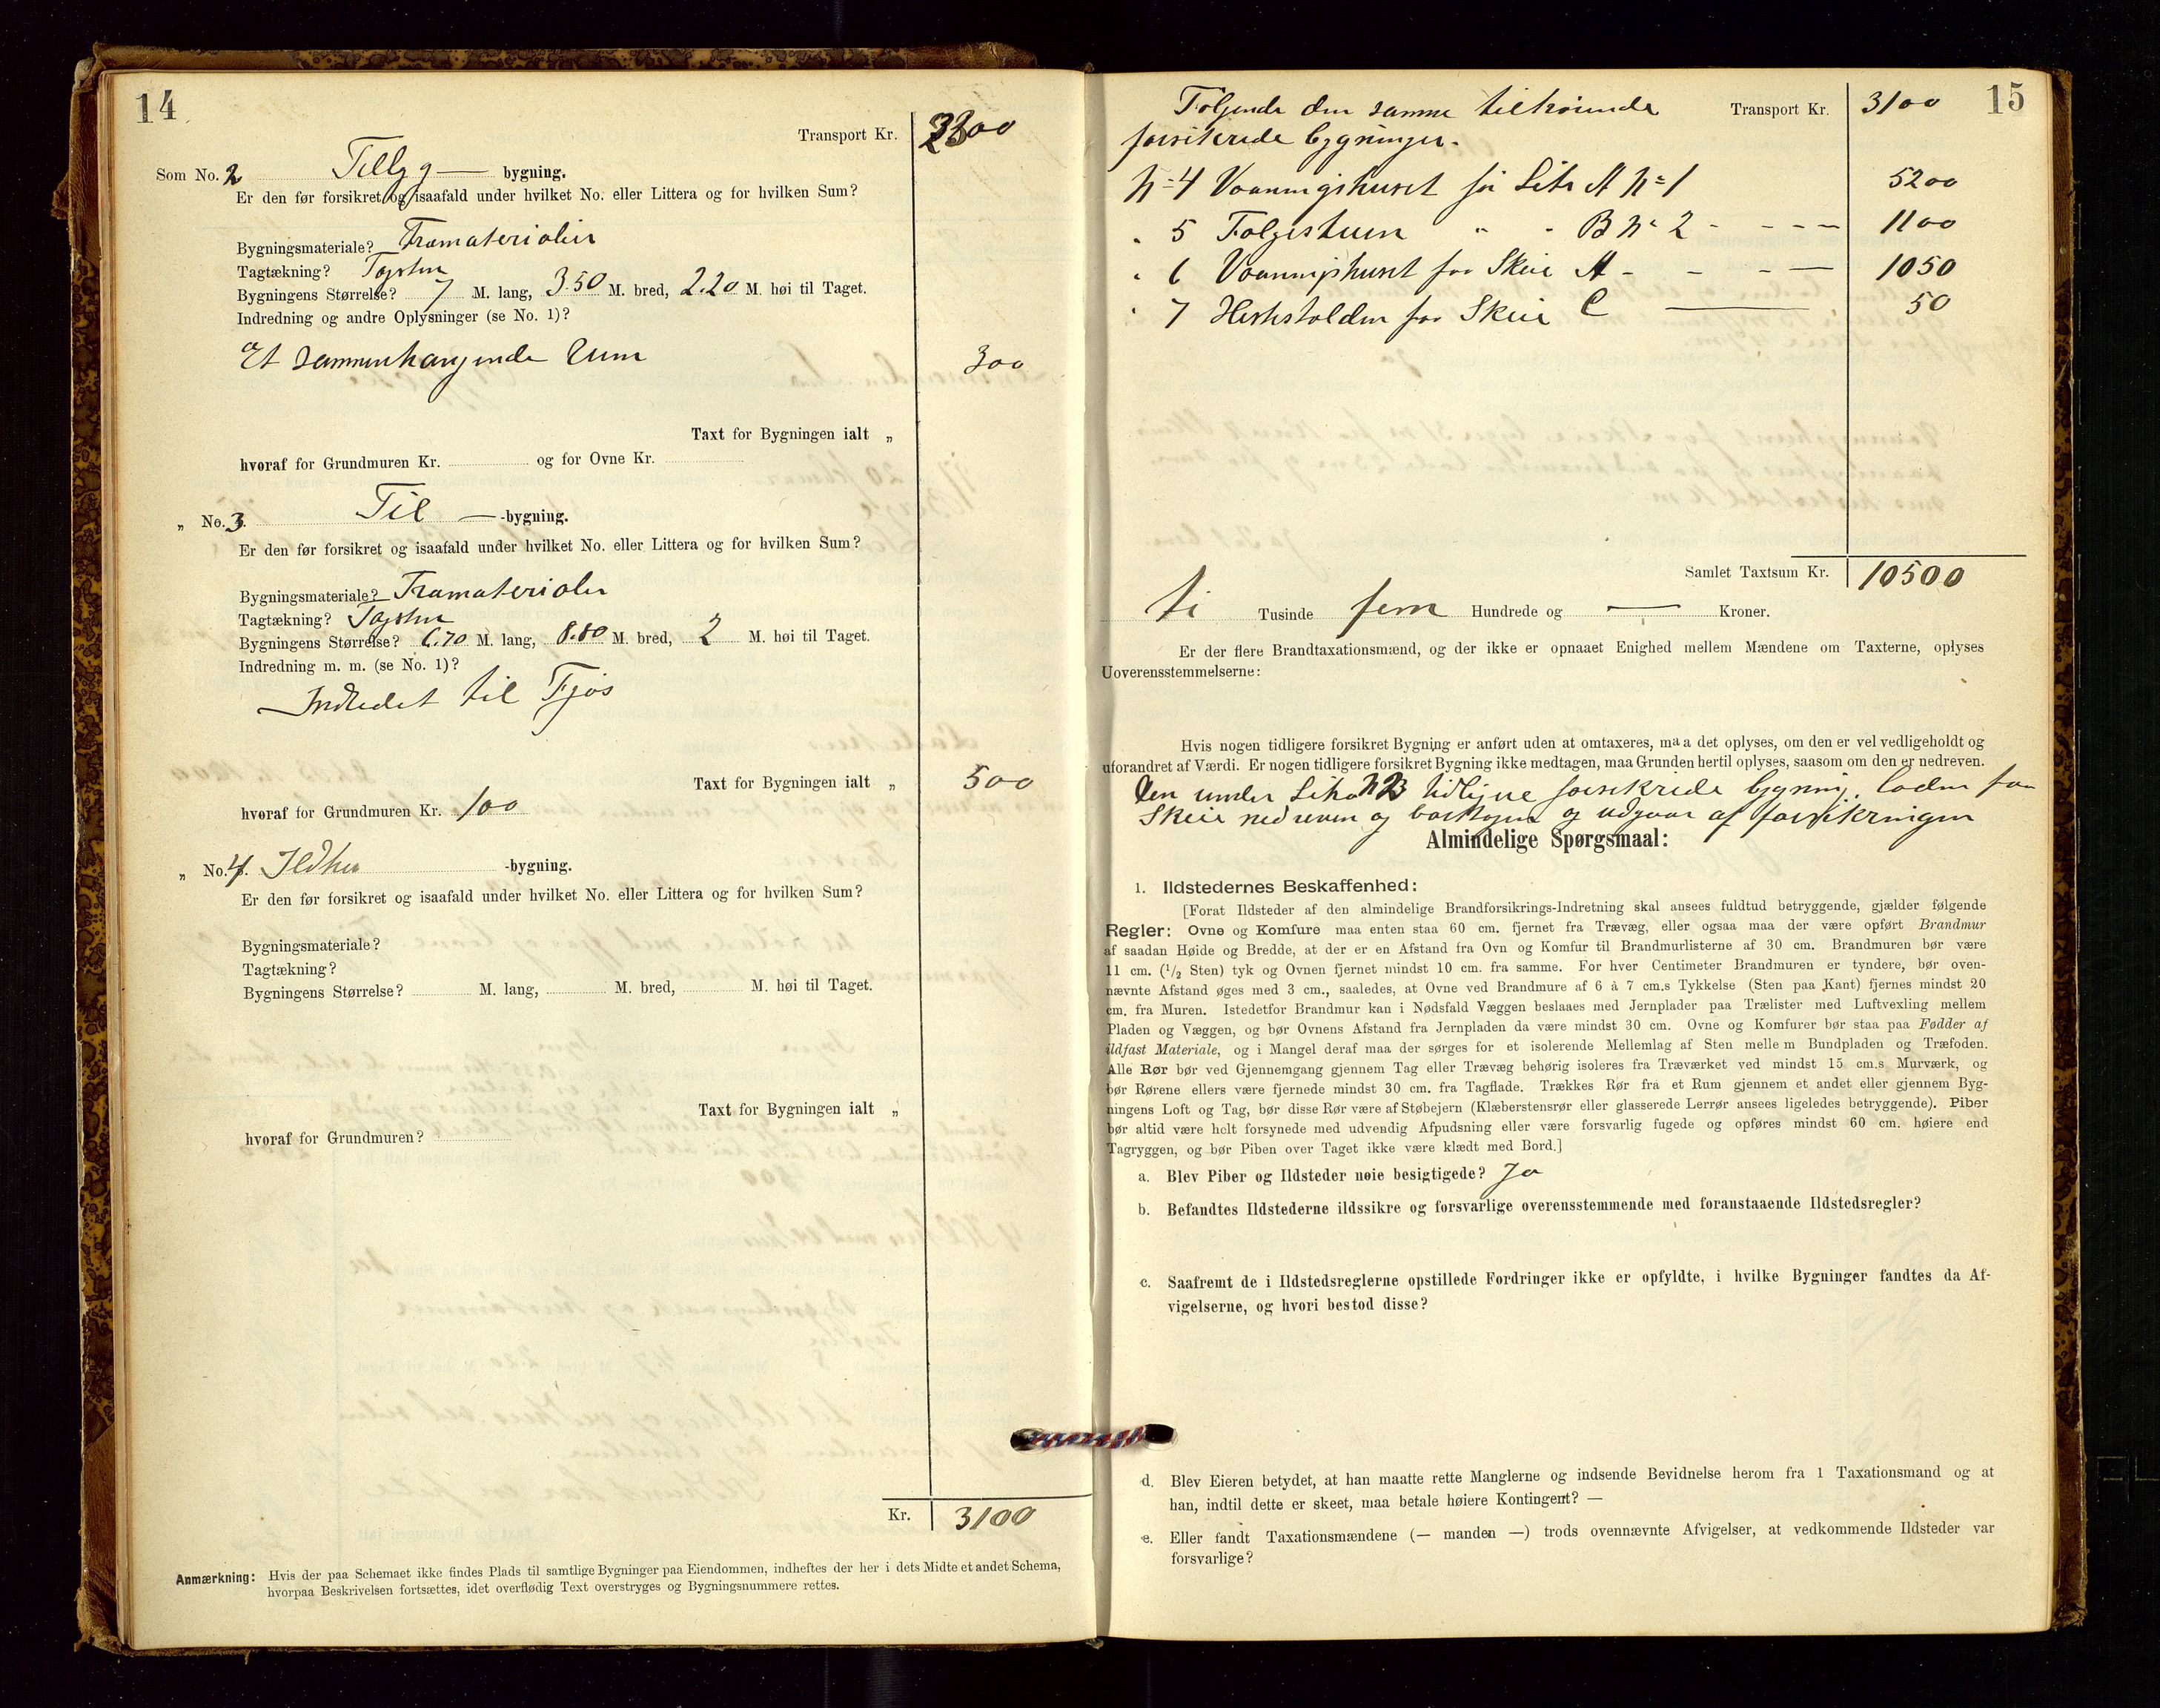 14
Transport Kr. 2300
Som No. 2 Tilbyg — bygning.
Er den før forsikret og isaafald under hvilket No. eller Littera og for hvilken Sum?
Bygningsmateriale? Træmaterialier
Tagtækning? Tagsten
Bygningens Størrelse? 7 M. lang, 3.50 M. bred, 2.20 M. høi til Taget.
Indredning og andre Oplysninger (se No. 1)?
Et sammenhængende Rum 300
Taxt for Bygningen ialt „
hvoraf for Grundmuren Kr. og for Ovne Kr.
„ No. 3. Til — -bygning.
Er den før forsikret og isaafald under hvilket No. eller Littera og for hvilken Sum?
Bygningsmateriale? Træmaterialier
Tagtækning? Tagsten
Bygningens Størrelse? 6.70 M. lang, 8.80 M. bred, 2 M. høi til Taget.
Indredning m. m. (se No. 1)?
Indredet til Fjøs
Taxt for Bygningen ialt „ 500
hvoraf for Grundmuren Kr. 100
„ No. 4. Ildhus -bygning.
Er den før forsikret og isaafald under hvilket No. eller Littera og for hvilken Sum?
Bygningsmateriale?
Tagtækning?
Bygningens Størrelse? M. lang, M. bred, M. høi til Taget.
Taxt for Bygningen ialt „
hvoraf for Grundmuren?
Kr. 3100
Anmærkning: Hvis der paa Schemaet ikke findes Plads til samtlige Bygninger paa Eiendommen, indheftes der her i dets Midte et andet Schema,
hvorpaa Beskrivelsen fortsættes, idet overflødig Text overstryges og Bygningsnummere rettes.
15
Følgende den samme tilhørende Transport Kr. 3100
forsikrede bygninger.
N= 4 Vaaningshuset for Litr A N= 1 5200
" 5 Følgestuen " " B N= 2 - - - - 1100
" 6 Vaaningshuset paa Skeie A - - - - 1050
" 7 Hestestalden paa Skeie C — 50
Samlet Taxtsum Kr. 10500
ti Tusinde fem Hundrede og — Kroner.
Er der flere Brandtaxationsmænd, og der ikke er opnaaet Enighed mellem Mændene om Taxterne, oplyses
Uoverensstemmelserne:
Hvis nogen tidligere forsikret Bygning er anført uden at omtaxeres, maa det oplyses, om den er vel vedligeholdt og
uforandret af Værdi. Er nogen tidligere forsikret Bygning ikke medtagen, maa Grunden hertil oplyses, saasom om den er nedreven.
Den under Litra B tidligere forsikrede bygning, Laden paa
Skeie nedreven og borttagen og udgaar af forsikringen
Almindelige Spørgsmaal:
1. Ildstedernes Beskaffenhed:
[Forat Ildsteder af den almindelige Brandforsikrings-Indretning skal ansees fuldtud betryggende, gjælder følgende
Regler: Ovne og Komfure maa enten staa 60 cm. fjernet fra Trævæg, eller ogsaa maa der være opført Brandmur
af saadan Høide og Bredde, at der er en Afstand fra Ovn og Komfur til Brandmurlisterne af 30 cm. Brandmuren bør være
11 cm. (1/2 Sten) tyk og Ovnen fjernet mindst 10 cm. fra samme. For hver Centimeter Brandmuren er tyndere, bør oven-
nævnte Afstand øges med 3 cm., saaledes, at Ovne ved Brandmure af 6 à 7 cm.s Tykkelse (Sten paa Kant) fjernes mindst 20
cm. fra Muren. Istedetfor Brandmur kan i Nødsfald Væggen beslaaes med Jernplader paa Trælister med Luftvexling mellem
Pladen og Væggen, og bør Ovnens Afstand fra Jernpladen da være mindst 30 cm. Ovne og Komfurer bør staa paa Fødder af
ildfast Materiale, og i Mangel deraf maa der sørges for et isolerende Mellemlag af Sten mellem Bundpladen og Træfoden.
Alle Rør bør ved Gjennemgang gjennem Tag eller Trævæg behørig isoleres fra Træværket ved mindst 15 cm.s Murværk, og
bør Rørene ellers være fjernede mindst 30 cm. fra Tagflade. Trækkes Rør fra et Rum gjennem et andet eller gjennem Byg-
ningens Loft og Tag, bør disse Rør være af Støbejern (Klæberstensrør eller glasserede Lerrør ansees ligeledes betryggende). Piber
bør altid være helt forsynede med udvendig Afpudsning eller være forsvarlig fugede og opføres mindst 60 cm. høiere end
Tagryggen, og bør Piben over Taget ikke være klædt med Bord.]
a. Blev Piber og Ildsteder nøie besigtigede? Ja
b. Befandtes Ildstederne ildssikre og forsvarlige overensstemmende med foranstaaende Ildstedsregler?
c. Saafremt de i Ildstedsreglerne opstillede Fordringer ikke er opfyldte, i hvilke Bygninger fandtes da Af-
vigelserne, og hvori bestod disse?
d. Blev Eieren betydet, at han maatte rette Manglerne og indsende Bevidnelse herom fra 1 Taxationsmand og at
han, indtil dette er skeet, maa betale høiere Kontingent? —
e. Eller fandt Taxationsmændene (— manden —) trods ovennævnte Afvigelser, at vedkommende Ildsteder var
forsvarlige?